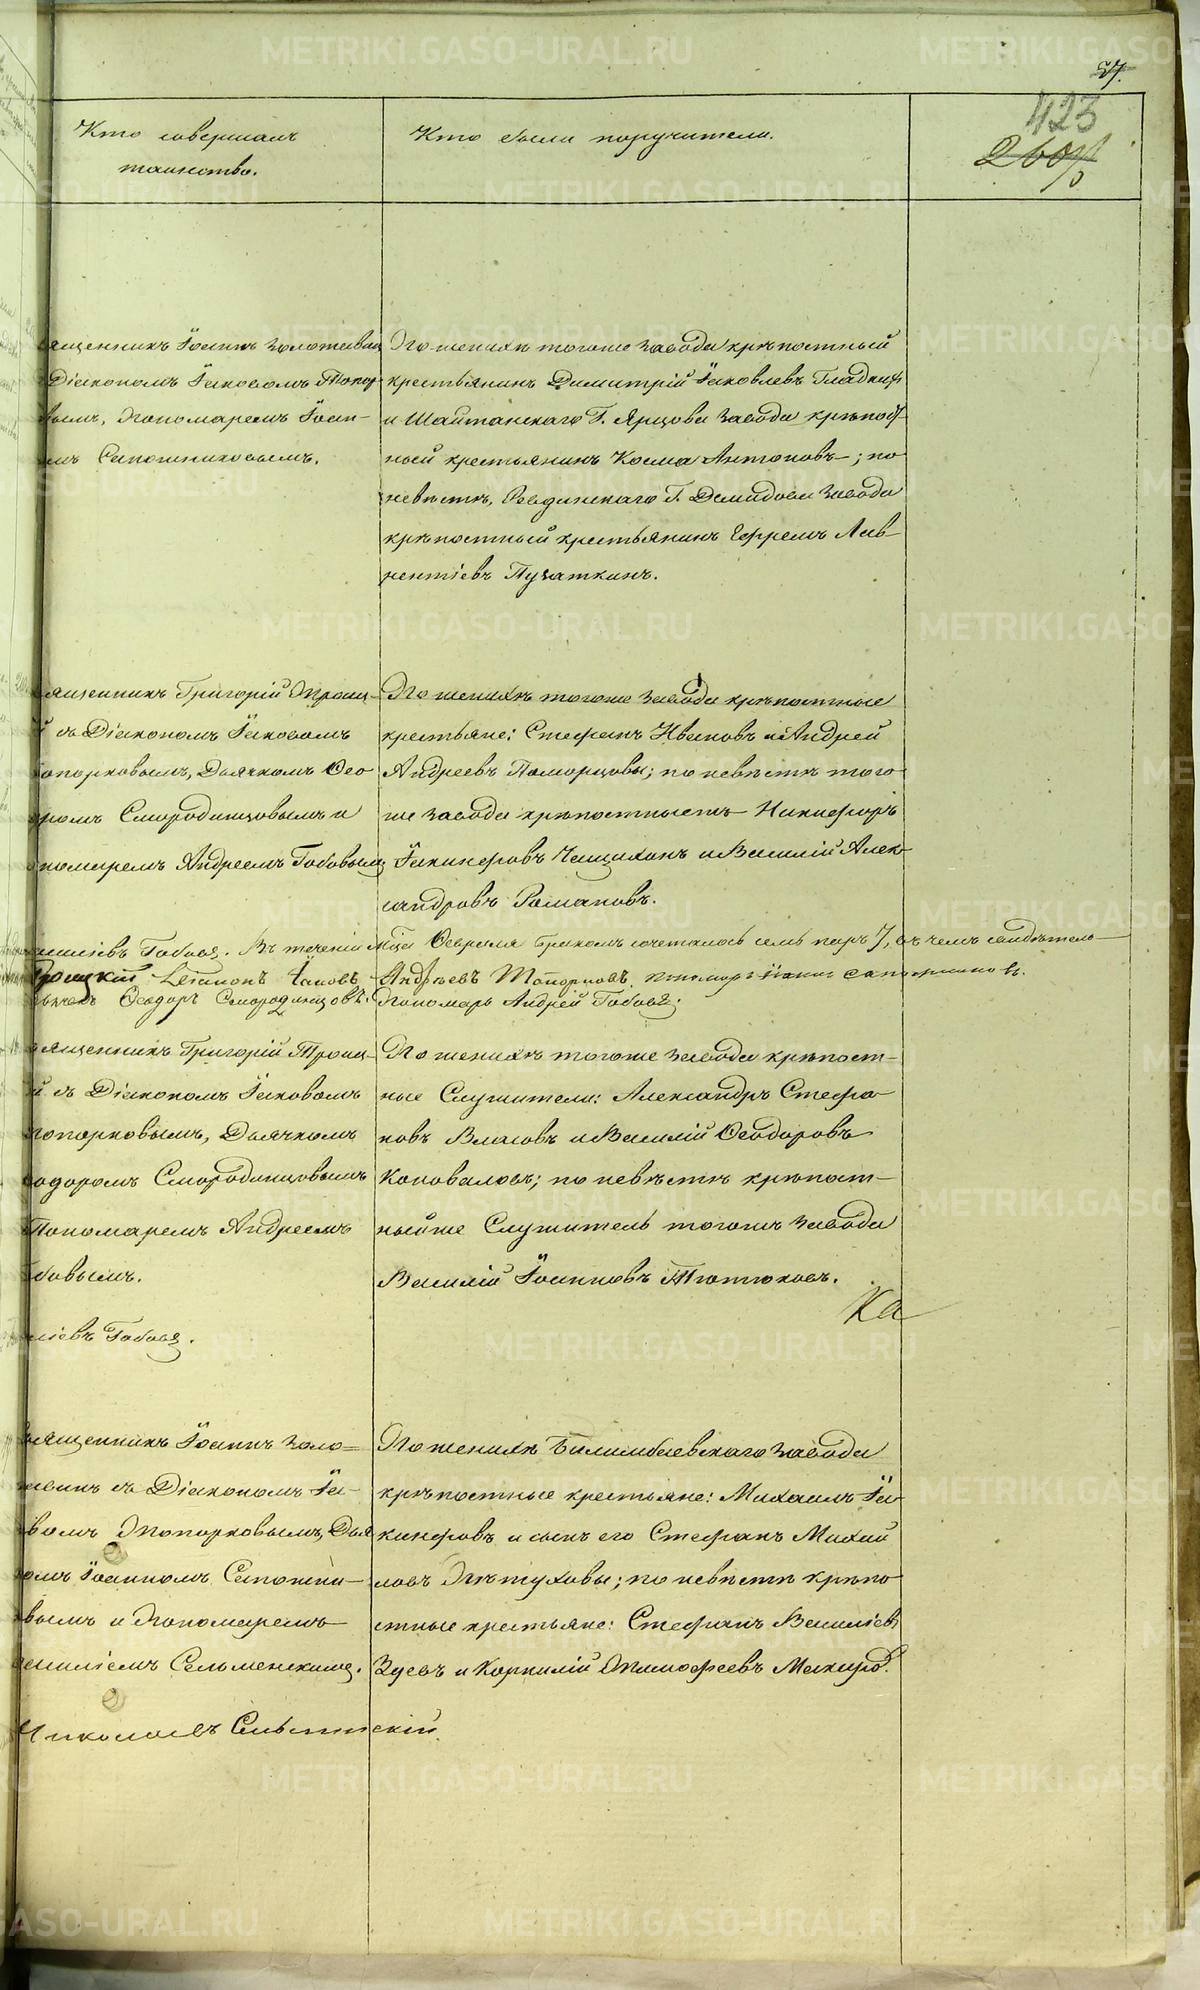 57.
423
260
Кто совершалъ
таинство.
Кто были поручители.
ященникъ Іоаннъ Золотавин
Діакономъ Іаковомъ Топор
вымъ, Пономаремъ Іоан-
мъ Сапожниковымъ.
По женихѣ тогоже завода крѣпостный
крестьянинъ Димитрій Іаковлевъ Гладких
и Шайтанскаго Г. Ярцова завода крѣпост
ной крестьянинъ Косма Антоновъ; по
невѣстѣ, Ревдинскаго Г. Демидова завода
крѣпостный крестьянинъ Ефремъ Лав-
рентіевъ Пузаткинъ.
ященникъ Григорій Троиц-
й съ Діакономъ Іаковомъ
опорковымъ, Дьячкомъ Ѳео
оромъ Смородинцовымъ и
ономаремъ Андреемъ Бабовым
По женихѣ тогоже завода крѣпостные
крестьяне: Стефанъ Ивановъ и Андрей
Андреевъ Поморцовы; по невѣстѣ того
же завода крѣпостныеже Никифоръ
Іакинфовъ Чащихинъ и Василій Алек
сандровъ Романовъ.
Въ теченіи мца Февраля бракомъ сочеталось семь паръ 7, въ чемъ свидѣтель
Троицкій Діаконъ Іаковъ Андреевъ Топорковъ. Пономарь Іоаннъ Сапожниковъ.
ьячекъ Ѳеодоръ Смородинцовъ. Пономарь Андрей Бабовъ.
ященникъ Григорій Троиц-
й съ Діакономъ Іаковомъ
опорковымъ, Дьячкомъ
одоромъ Смородинцовымъ
Пономаремъ Андреемъ
бовымъ.
По женихѣ тогоже завода крѣпост-
ные Служители: Александръ Стефа
новъ Власовъ и Василій Ѳеодоровъ
Коноваловъ; по невѣстѣ крѣпост-
ныйже Служитель тогожъ завода
Василій Іоанновъ Тютюковъ.
Ка
ліевъ Бабовъ.
вященникъ Іоаннъ Золо=
авинъ съ Діакономъ Іа-
вомъ Топорковымъ, Дья
омъ Іоанномъ Сапожни-
вымъ и Пономаремъ
асиліемъ Сельменскимъ.
По женихѣ Билимбаевскаго завода
крѣпостные крестьяне: Михаилъ Іа
кинфовъ и сынъ его Стефанъ Михай
ловъ Пѣтуховы; по невѣстѣ крѣпо
стные крестьяне: Стефанъ Василіев
Зуевъ и Корнилій Тимофеевъ Макаров.
Николаевъ Сельменскій.
METRIKI.GASO-URAL.RU